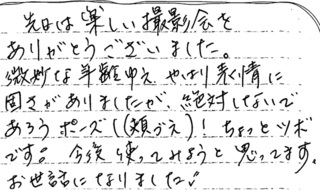 先日は楽しい撮影会を
ありがとうございました。
微妙な年齢ゆえ、やはり表情に
固さがありましたが、絶対しないで
あろうポーズ((頬づえ)!ちょっとツボ
です。今後使ってみようと思ってます。
お世話になりました♪